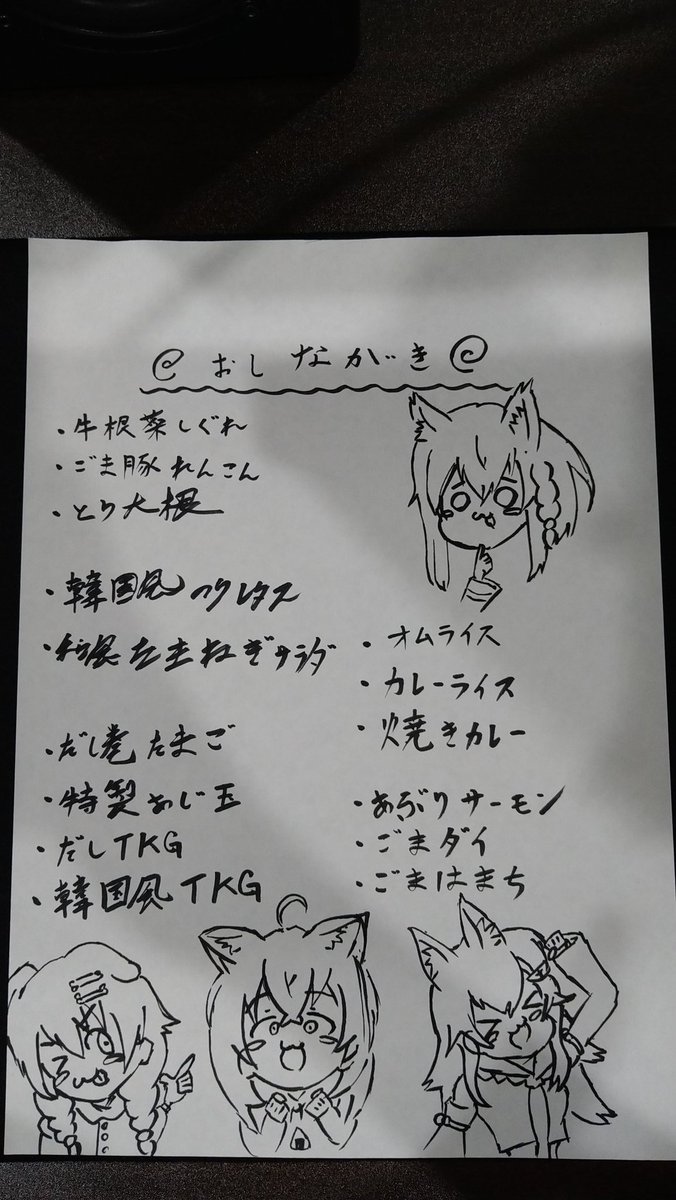 おしながき
・牛根菜しぐれ
・ごま豚れんこん
・とり大根
・韓国風つくレタス
・和風たまねぎサラダ
・だし巻たまご
・特製あじ玉
・だしTKG
・韓国風TKG
・オムライス
・カレーライス
・焼きカレー
・あぶりサーモン
・ごまダイ
・ごまはまち